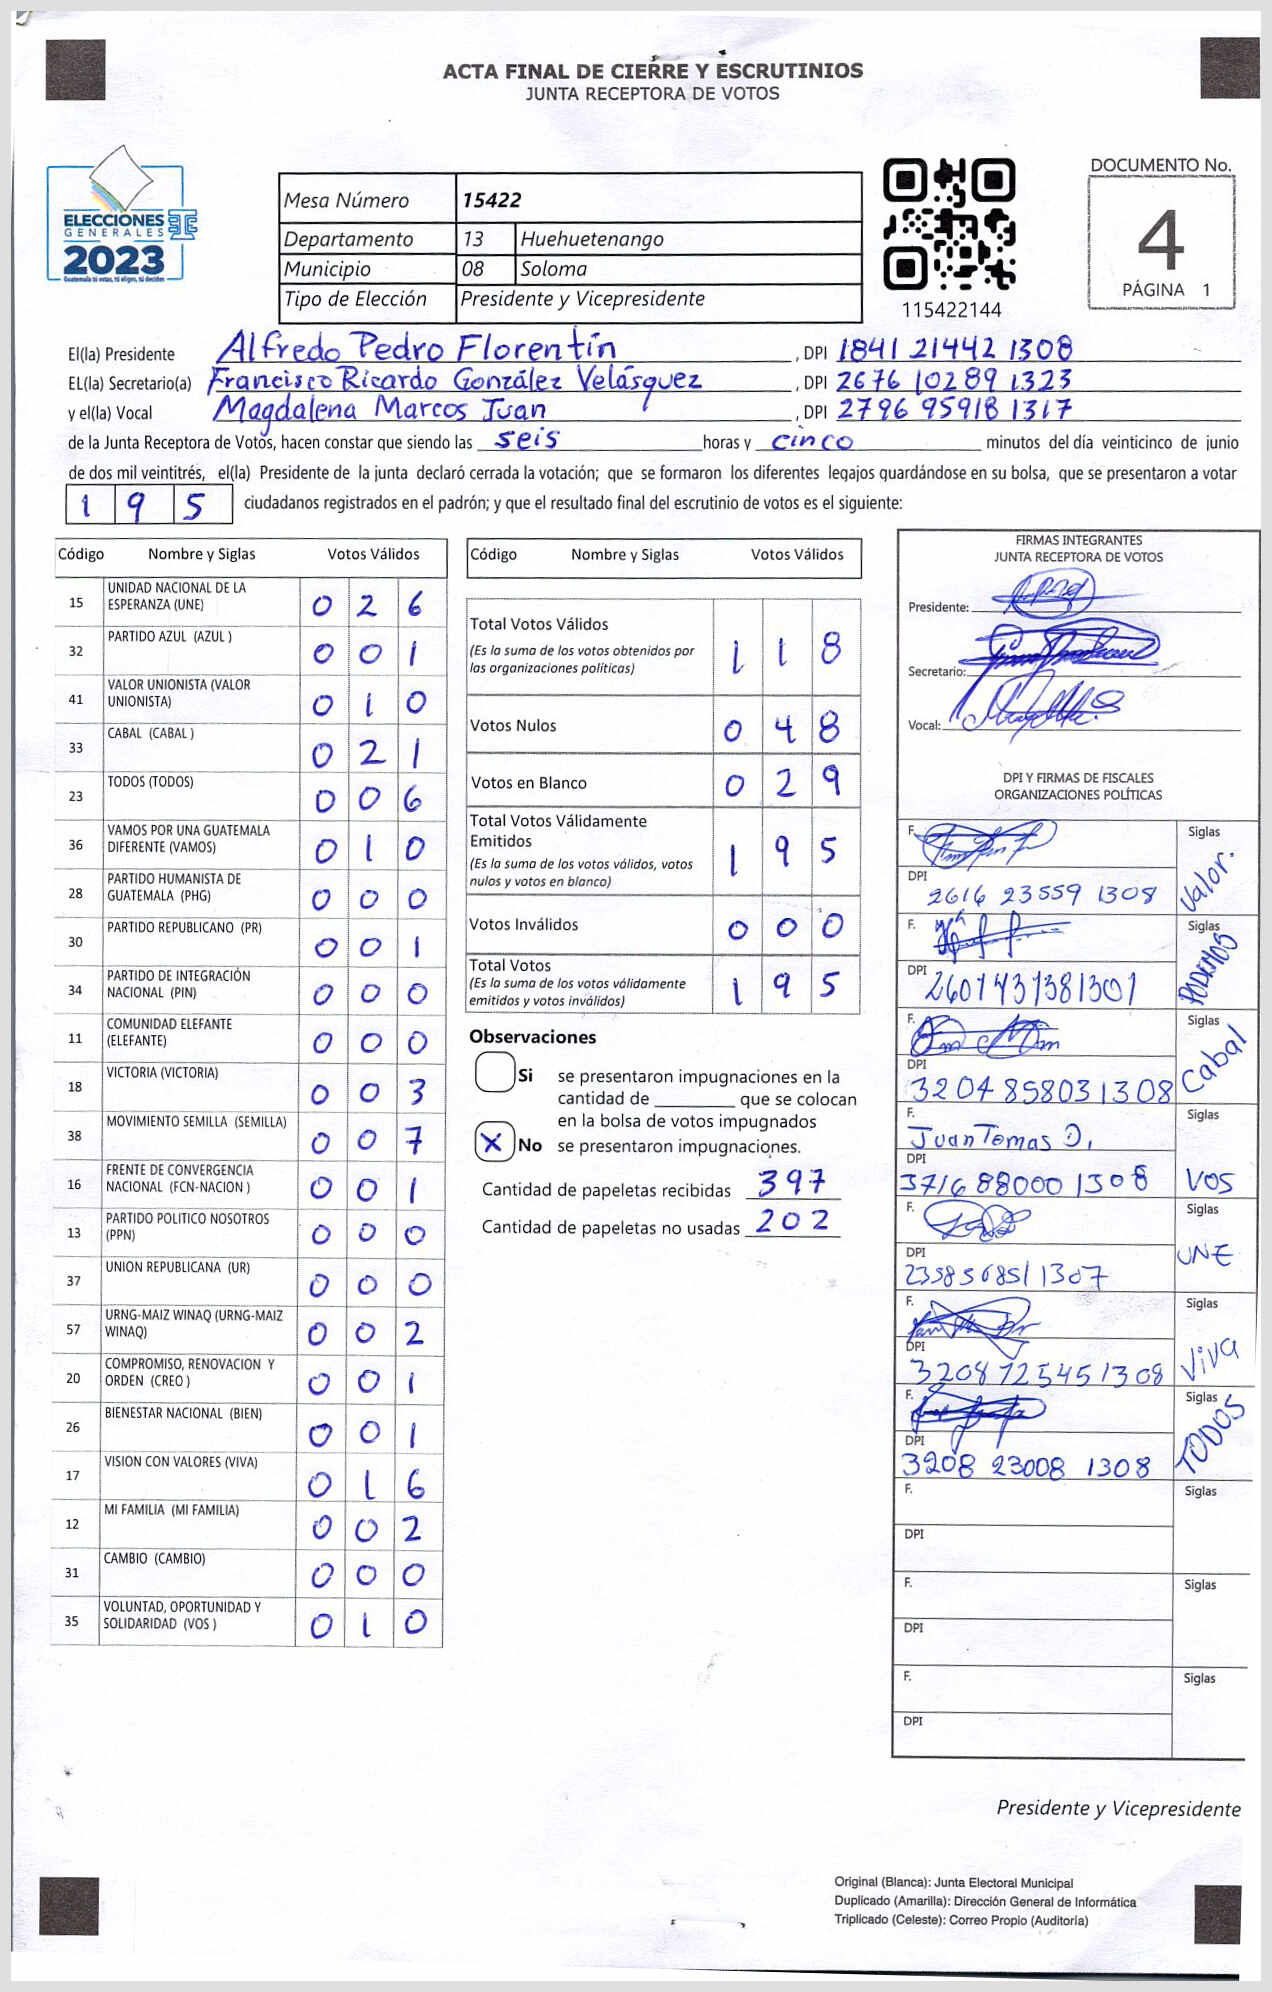 ACTA FINAL DE CIERRE Y ESCRUTINIOS
JUNTA RECEPTORA DE VOTOS
ELECCIONES
GENERALES
2023
Guatemala tú votas, tú eliges, tú decides
Mesa Número 15422
Departamento 13 Huehuetenango
Municipio 08 Soloma
Tipo de Elección Presidente y Vicepresidente
115422144
DOCUMENTO No.
4
PÁGINA 1
El(la) Presidente Alfredo Pedro Florentín, DPI 1841 21442 1308
EL(la) Secretario(a) Francisco Ricardo González Velásquez, DPI 2676 10289 1323
y el(la) Vocal Magdalena Marcos Juan, DPI 2796 95918 1317
de la Junta Receptora de Votos, hacen constar que siendo las seis horas y cinco minutos del día veinticinco de junio
de dos mil veintitrés, el(la) Presidente de la junta declaró cerrada la votación; que se formaron los diferentes legajos quardándose en su bolsa, que se presentaron a votar
195 ciudadanos registrados en el padrón; y que el resultado final del escrutinio de votos es el siguiente:
Código Nombre y Siglas Votos Válidos
15 UNIDAD NACIONAL DE LA ESPERANZA (UNE) 026
32 PARTIDO AZUL (AZUL ) 001
41 VALOR UNIONISTA (VALOR UNIONISTA) 010
33 CABAL (CABAL ) 021
23 TODOS (TODOS) 006
36 VAMOS POR UNA GUATEMALA DIFERENTE (VAMOS) 010
28 PARTIDO HUMANISTA DE GUATEMALA (PHG) 000
30 PARTIDO REPUBLICANO (PR) 001
34 PARTIDO DE INTEGRACIÓN NACIONAL (PIN) 000
11 COMUNIDAD ELEFANTE (ELEFANTE) 000
18 VICTORIA (VICTORIA) 003
38 MOVIMIENTO SEMILLA (SEMILLA) 007
16 FRENTE DE CONVERGENCIA NACIONAL (FCN-NACION ) 001
13 PARTIDO POLITICO NOSOTROS (PPN) 000
37 UNION REPUBLICANA (UR) 000
57 URNG-MAIZ WINAQ (URNG-MAIZ WINAQ) 002
20 COMPROMISO, RENOVACION Y ORDEN (CREO ) 001
26 BIENESTAR NACIONAL (BIEN) 001
17 VISION CON VALORES (VIVA) 016
12 MI FAMILIA (MI FAMILIA) 002
31 CAMBIO (CAMBIO) 000
35 VOLUNTAD, OPORTUNIDAD Y SOLIDARIDAD (VOS ) 010
Código Nombre y Siglas Votos Válidos
Total Votos Válidos 118
(Es la suma de los votos obtenidos por
las organizaciones politicas)
Votos Nulos 048
Votos en Blanco 029
Total Votos Válidamente
Emitidos 195
(Es la suma de los votos válidos, votos
nulos y votos en blanco)
Votos Inválidos 000
Total Votos 195
(Es la suma de los votos válidamente
emitidos y votos inválidos)
Observaciones
Si se presentaron impugnaciones en la
cantidad de ________ que se colocan
en la bolsa de votos impugnados
X No se presentaron impugnaciones.
Cantidad de papeletas recibidas 397
Cantidad de papeletas no usadas 202
FIRMAS INTEGRANTES
JUNTA RECEPTORA DE VOTOS
Presidente:
Secretario:
Vocal:
DPI Y FIRMAS DE FISCALES
ORGANIZACIONES POLÍTICAS
F. Siglas Valor.
DPI 2616 23559 1308
F. Siglas PODEMOS
DPI 2601431381301
F. Siglas Cabal
DPI 3204 85803 1308
F. Juan Tomas D. Siglas VOS
DPI 3716 88000 1308
F. Siglas UNE
DPI 2358568511307
F. Siglas Viva
DPI 3208 72545 1308
F. Siglas TODOS
DPI 3208 23008 1308
F. Siglas
DPI
F. Siglas
DPI
F. Siglas
DPI
Presidente y Vicepresidente
Original (Blanca): Junta Electoral Municipal
Duplicado (Amarilla): Dirección General de Informática
Triplicado (Celeste): Correo Propio (Auditoría)